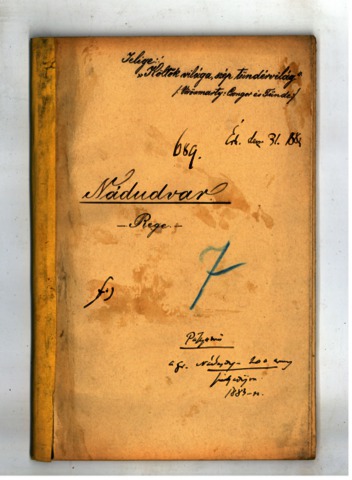 Jelige:
"Költők világa, szép tündérvilág"
/Vörösmarty: Csongor és Tünde/
Érk. dec. 31. 188
689.
Nádudvar.
- Rege. -
7
f.)
Pályamű
a gr. Nádasdy - 200 arany
pályadíjra
1883-n.